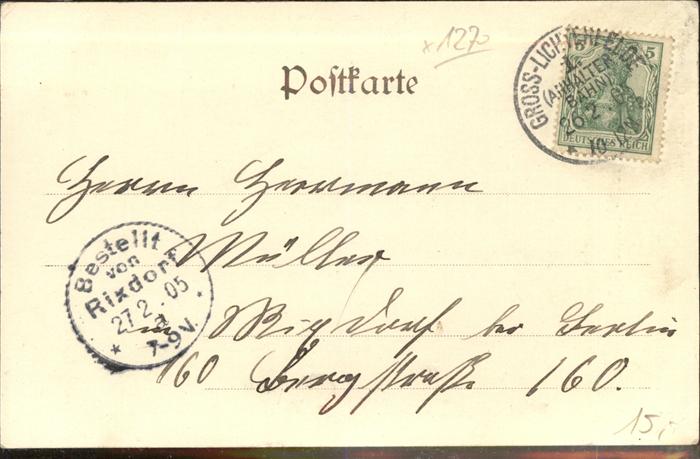 x 1270
Postkarte
5 5
DEUTSCHES REICH
GROSS-LICHTERFELDE
(ANHALTER-
BAHN)
26.2
10
Herrn Herrmann
Müller
Bestellt
von
Rixdorf
27.2.05
7-9V.
in Rixdorf bei Berlin
160 Bergstraße 160.
15.-